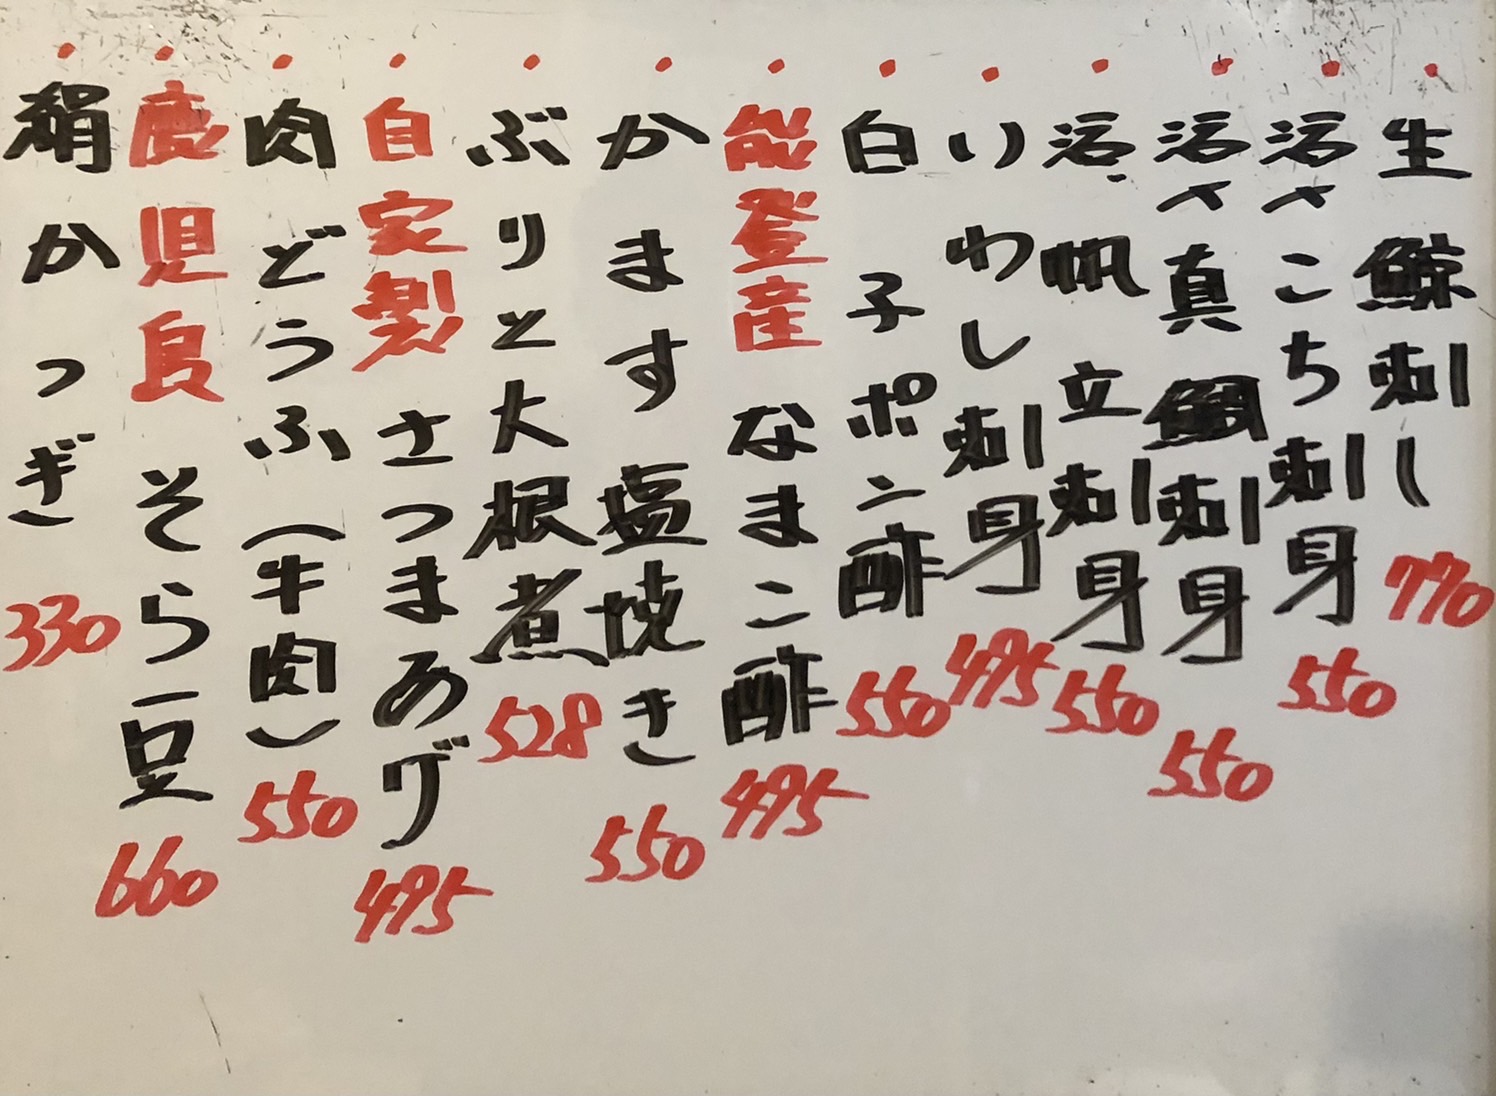 ・生鯨刺し 770
・活〆こち刺身 550
・活〆真鯛刺身 550
・活帆立刺身 550
・いわし刺身 495
・白子ポン酢 550
・能登産 なまこ酢 495
・かます塩焼き 550
・ぶりと大根煮 528
・自家製 さつまあげ 495
・肉どうふ(牛肉) 550
・鹿児島 そら豆 660
・絹かつぎ 330